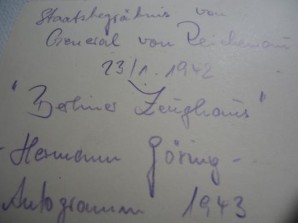 Staatsbegräbnis von
General von Reichenau
23/1. 1942
"Berliner Zeughaus"
- Hermann Göring -
Autogramm 1943